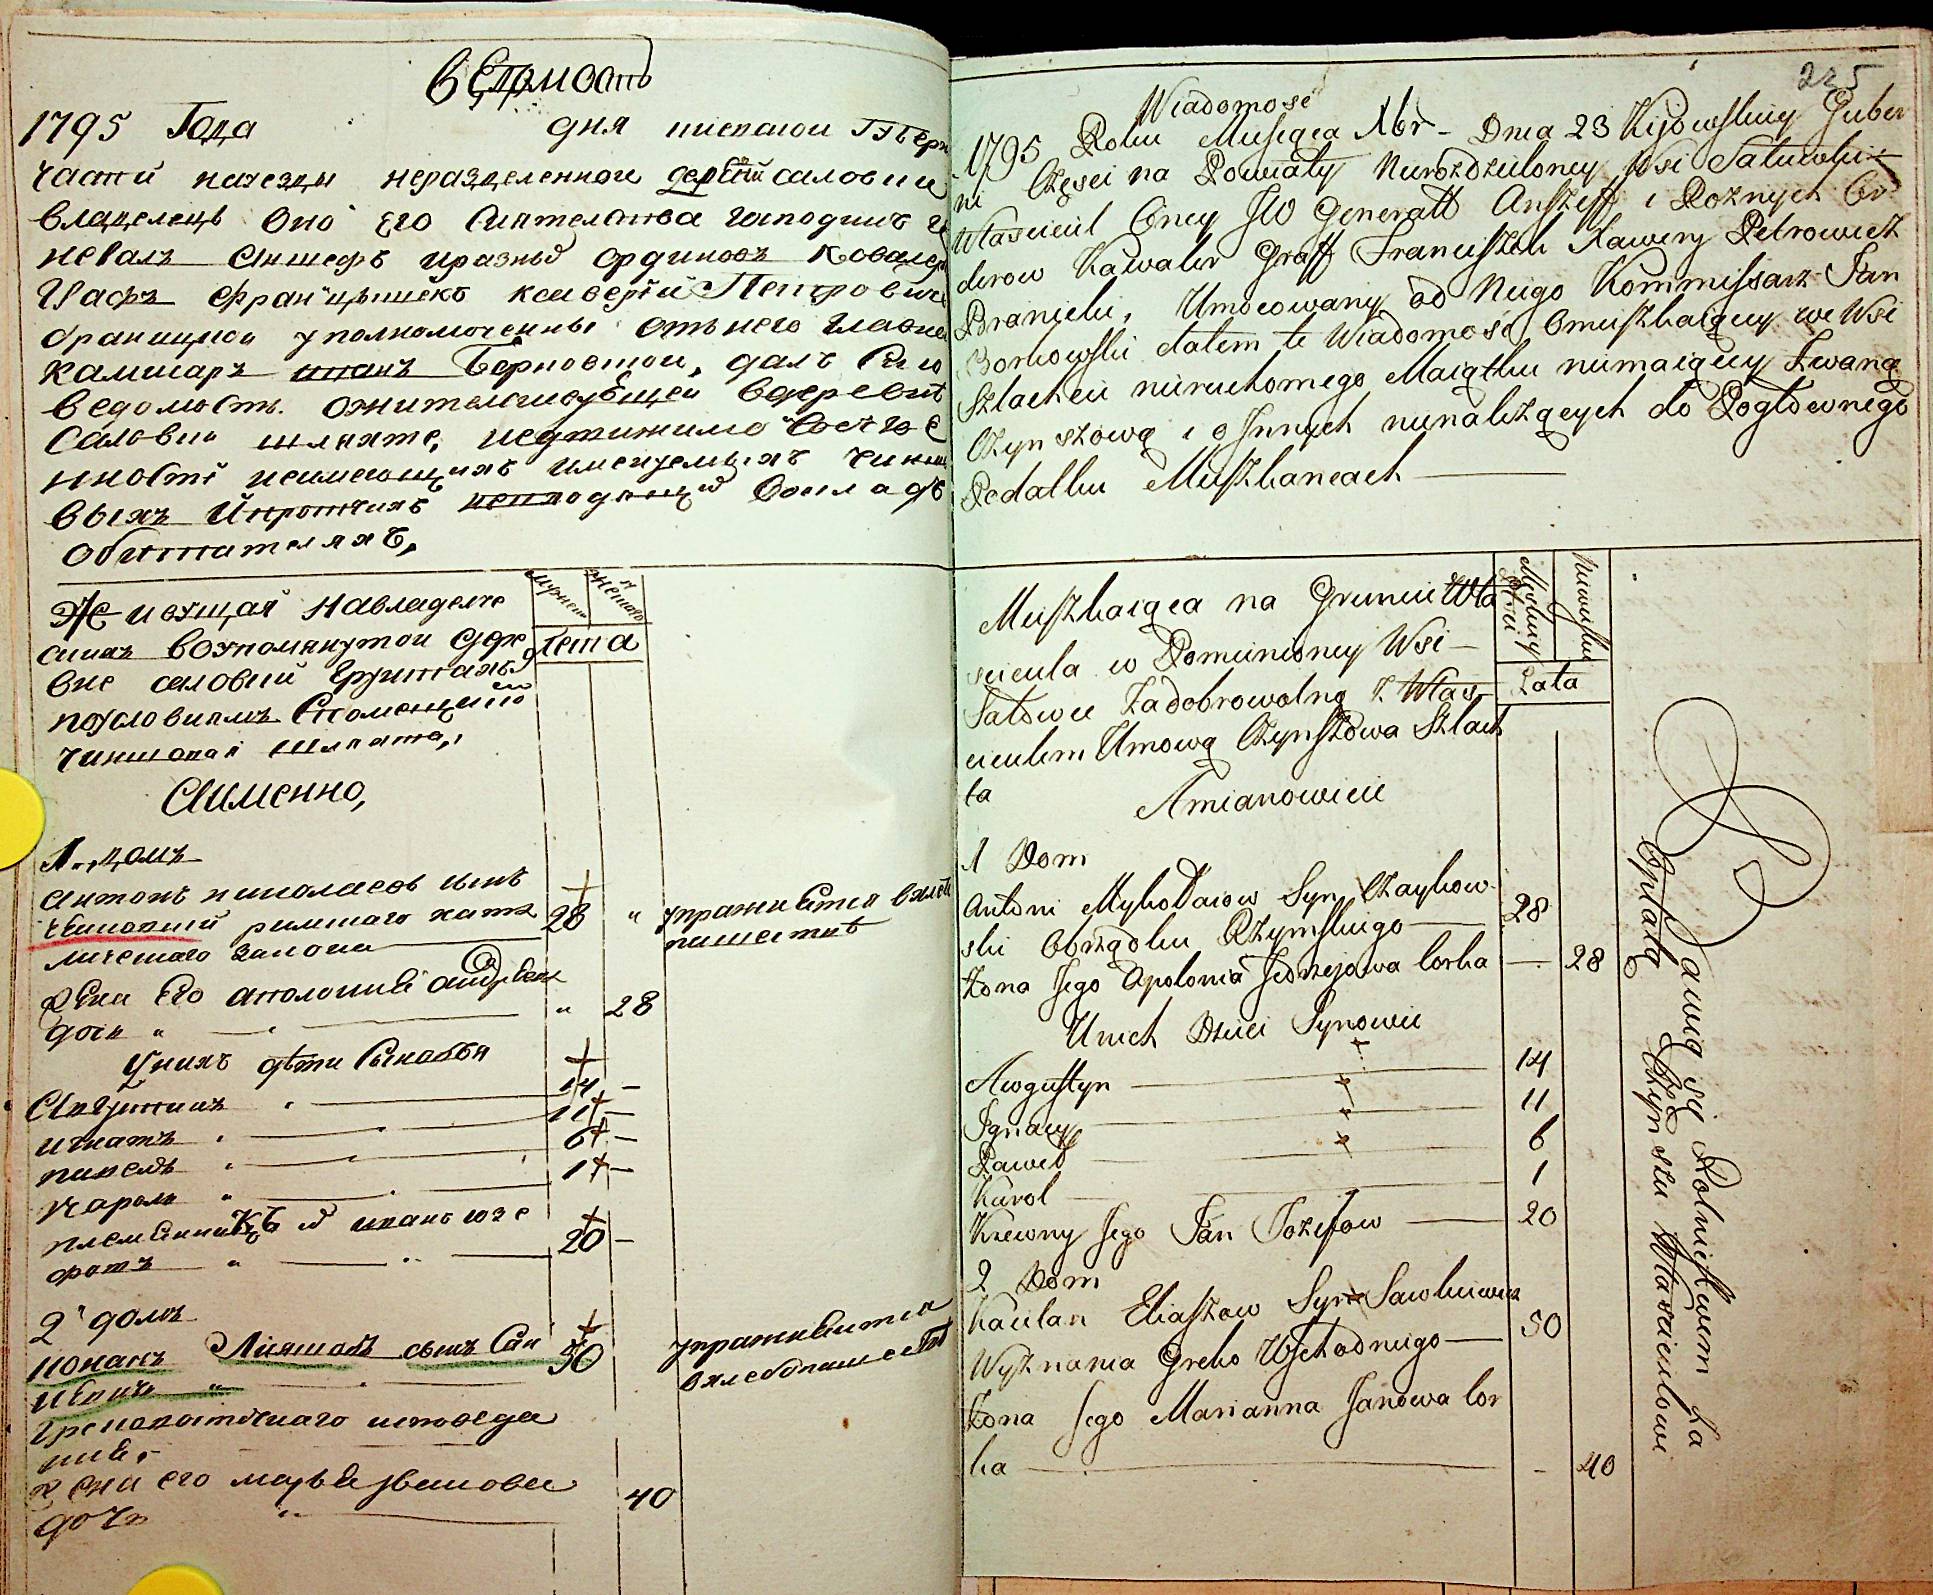 ведомость
1795 Года дня киевской Губерн
части науезды неразделенной деревни саловки
владелецъ оно его Сиятельства господинъ ге
нералъ аншефъ иразных ординовъ кавалеръ
Графъ францишекъ ксаверий Петровичъ
браницкой уполномоченны отънего главно
камисаръ Борковский, далъ Сию
ведомость. ожительствующей вдеревне
Саловки шляхте, недвижимо
имеющихъ именуемыхъ чинш
выхъ Ипротчихъ Вокладъ
обитателяхъ,
Живущая навладелче
скихъ возпомянутой дере
вне саловки грунтахъ
поусловиямъ Спомещиком
чиншовая шляхта,
мужеск женско
лета
Аименно,
1. домъ
антонъ николаевъ сынъ
римскаго като
лическаго закона 28 "
упражняется вхлебо
пашестве
жена его аполония андреева
дочь " 28
Унихъ дети Сыновья
Августинъ 14 —
игнатъ 11 —
павелъ 6 —
кароль 1 —
племянникъ иванъ юзе
фовъ 20 —
2 домъ
Элияшовъ сынъ Сав 50
упражняится
вхлебопашестве
грекокатическаго исповеда
ния.
жена его марья Иванова
дочь " 40
225
Wiadomosc
1795 Roku Miesiąca Xbr - Dnia 23 Kijowskiey Guber
ni Częsci na Powiaty Nierozdzieloney Wsi Sałuwki
Własciciel Oney JW Generall Anszeff i Roznych Or
derow Kawaler Graff Franciszek Xawery Petrowicz
Branicki, Umocowany od Niego Kommissarz Jan
Borkowski dałem te Wiadomosc Omieszkaiącey we Wsi
Szlachcie nieruchomego Maiątku niemaiącey Zwaną
Czynszową i o Jnnych nienalezących do Pogłownego
Podatku Mieszkancach
Mieszkaiąca na Gruncie Wła
sciciela w Pomienioney Wsi
Sałowce Zadobrowolną z Włas
cicielem Umową Czynszowa Szlach
ta Amianowicie
Męskiey Płci Niewieskiey
Lata
1 Dom
Antoni Mykołaiow Syn Czaykow
ski Obrządku Rzymskiego 28
Zona Jego Apolonia Jędrzejowa Corka — 28
Unich Dzieci Synowie
Awgustyn 14
Jgnacy 11
Paweł 6
Karol 1
Krewny Jego Jan Jozefow 20
2 Dom
Eliaszow Syn Sawkiewicz
Wyznania Greko Wschodniego 50
Zona Jego Marianna Janowa Cor
ka - 40
Bawią się Rolnictwem Za
Opłatą Czynszu Włascicielowi